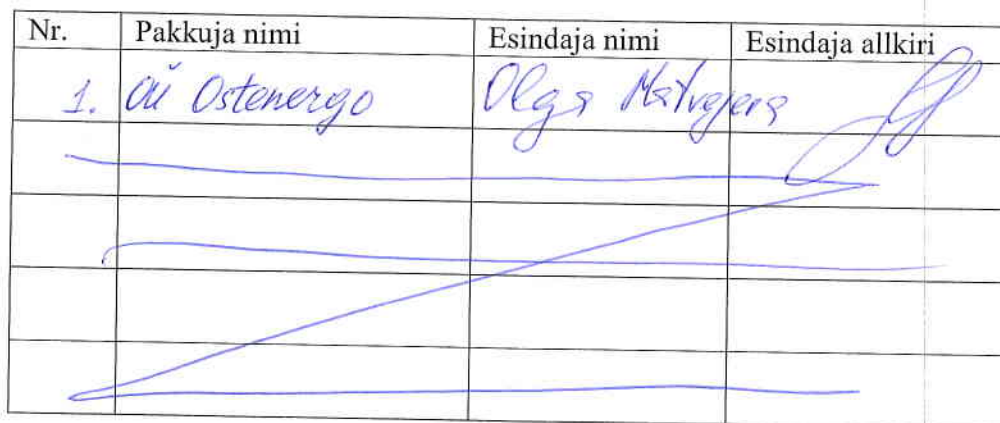 Nr. Pakkuja nimi Esindaja nimi Esindaja allkiri
1. OÜ Ostenergo Olga Matvejeva